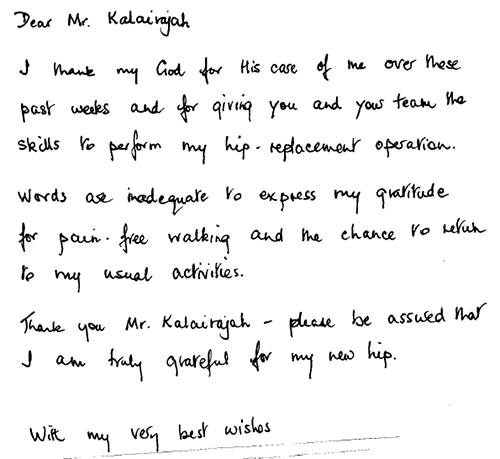 Dear Mr. Kalairajah
I thank my God for His care of me over these
past weeks and for giving you and your team the
skills to perform my hip-replacement operation.
Words are inadequate to express my gratitude
for pain-free walking and the chance to return
to my usual activities.
Thank you Mr. Kalairajah – please be assured that
I am truly grateful for my new hip.
With my very best wishes